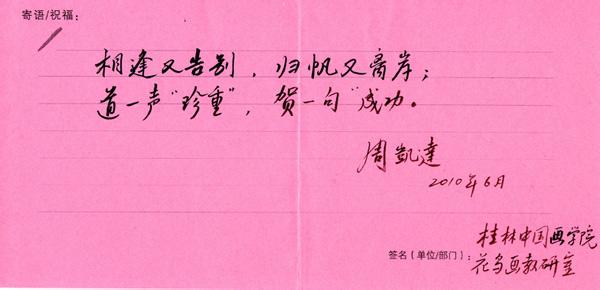 寄语/祝福:
相逢又告别，归帆又离岸；
道一声“珍重”，贺一句“成功。
周凱達
2010年6月
桂林中国画学院
签名(单位/部门):花鸟画教研室